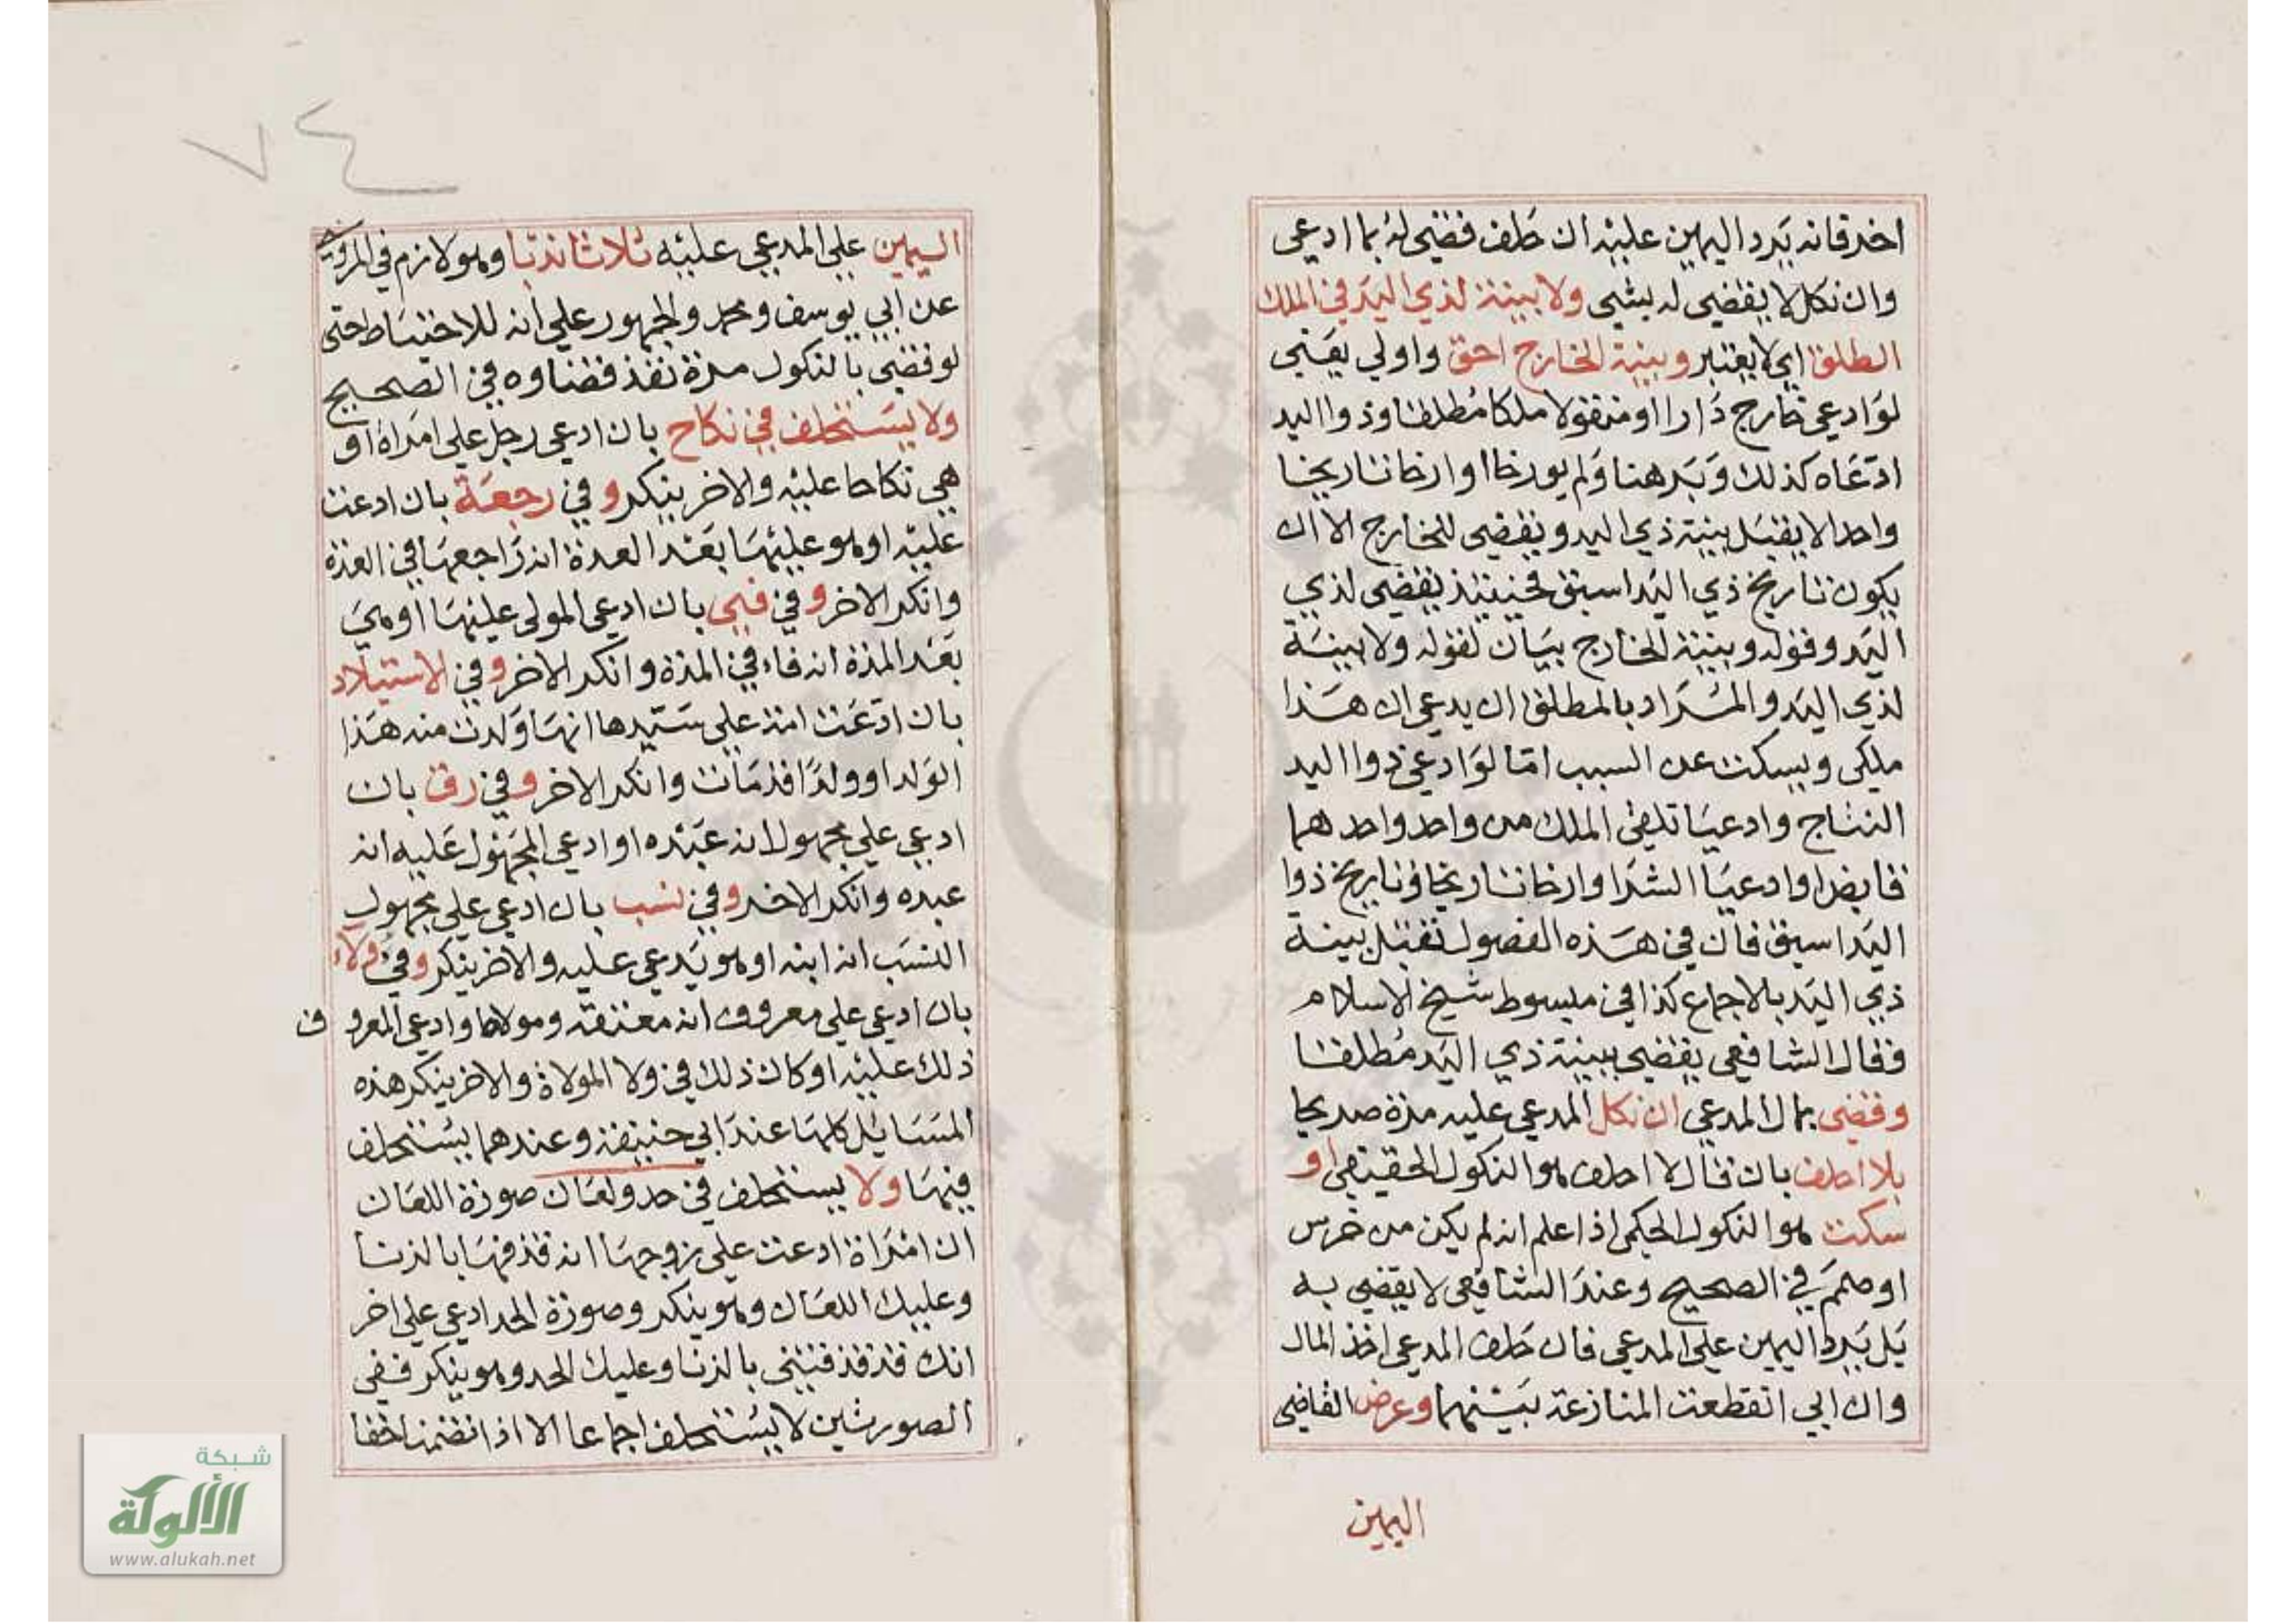 اخر فانه يرد اليمين عليه ان حلف قضي له بما ادعي
وان نكل لا يقضي له بشي ولا بينة لذي اليد في الملك
المطلق اي لا يعتبر وبينة الخارج احق واولي يعني
لو ادعي خارج دارا او منقولا ملكا مطلقا وذوا اليد
ادعاه كذلك وبرهنا ولم يورخا او ارخا تاريخا
واحد الا يقبل بينة ذي اليد ويقضي للخارج الا ان
يكون تاريخ ذي اليد اسبق فحينيذ يقضي لذي
اليد وقوله وبينة الخارج بيان لقوله ولا بينة
لذي اليد والمراد بالمطلق ان يدعي ان هذا
ملكي ويسكت عن السبب اما لو ادعي ذوا اليد
النتاج وادعيا تلقي الملك من واحد واحدهما
قابض او ادعيا الشرا وارخا تاريخا وتاريخ ذوا
اليد اسبق فان في هذه الفصول تقبل بينة
ذي اليد بالاجماع كذا في مبسوط شيخ الاسلام
وقال الشافعي يقضي ببينة ذي اليد مطلقا
وقضي بمال المدعي ان نكل المدعي عليه مرة صريحا
بلا احلف بان قال لا احلف هو النكول الحقيقي او
سكت هو النكول الحكمي اذا علم انه لم يكن من خرس
او صمم في الصحيح وعند الشافعي لا يقضي به
بل يرد اليمين علي المدعي فان حلف المدعي اخذ المال
وان ابي انقطعت المنازعة بينهما وعرض القاضي
اليمين
٧٤
اليمين علي المدعي عليه ثلاثا ندبا وهو لازم في المروي
عن ابي يوسف ومحمد والجمهور علي انه للاحتياط حتي
لو قضي بالنكول مرة نفذ قضاوه في الصحيح
ولا يستحلف في نكاح بان ادعي رجل علي امراة او
هي نكاحا عليه والاخر ينكر وفي رجعة بان ادعت
عليه او هو عليها بعد العدة انه راجعها في العدة
وانكر الاخر وفي فيي بان ادعي المولي عليها او هي
بعد المدة انه فاء في المدة وانكر الاخر وفي الاستيلاد
بان ادعت امة علي سيدها انها ولدت منه هذا
الولد او ولدا قد مات وانكر الاخر وفي رق بان
ادعي علي مجهول انه عبده او ادعي المجهول عليه انه
عبده وانكر الاخر وفي نسب بان ادعي علي مجهول
النسب انه ابنه او هو يدعي عليه والاخر ينكر وفي ولاء
بان ادعي علي معروف انه معتقه ومولاه او ادعي المعروف
ذلك عليه او كان ذلك في ولا الموالاة والاخر ينكر هذه
المسايل كلها عند ابي حنيفة وعندهما يستحلف
فيها ولا يستحلف في حد ولعان صورة اللعان
ان امراة ادعت علي زوجها انه قذفها بالزنا
وعليك اللعان وهو ينكر وصورة الحد ادعي علي اخر
انك قد قذفتني بالزنا وعليك الحد وهو ينكر ففي
الصورتين لا يستحلف اجماعا الا اذا تضمنا حقا
شبكة
الألوكة
www.alukah.net